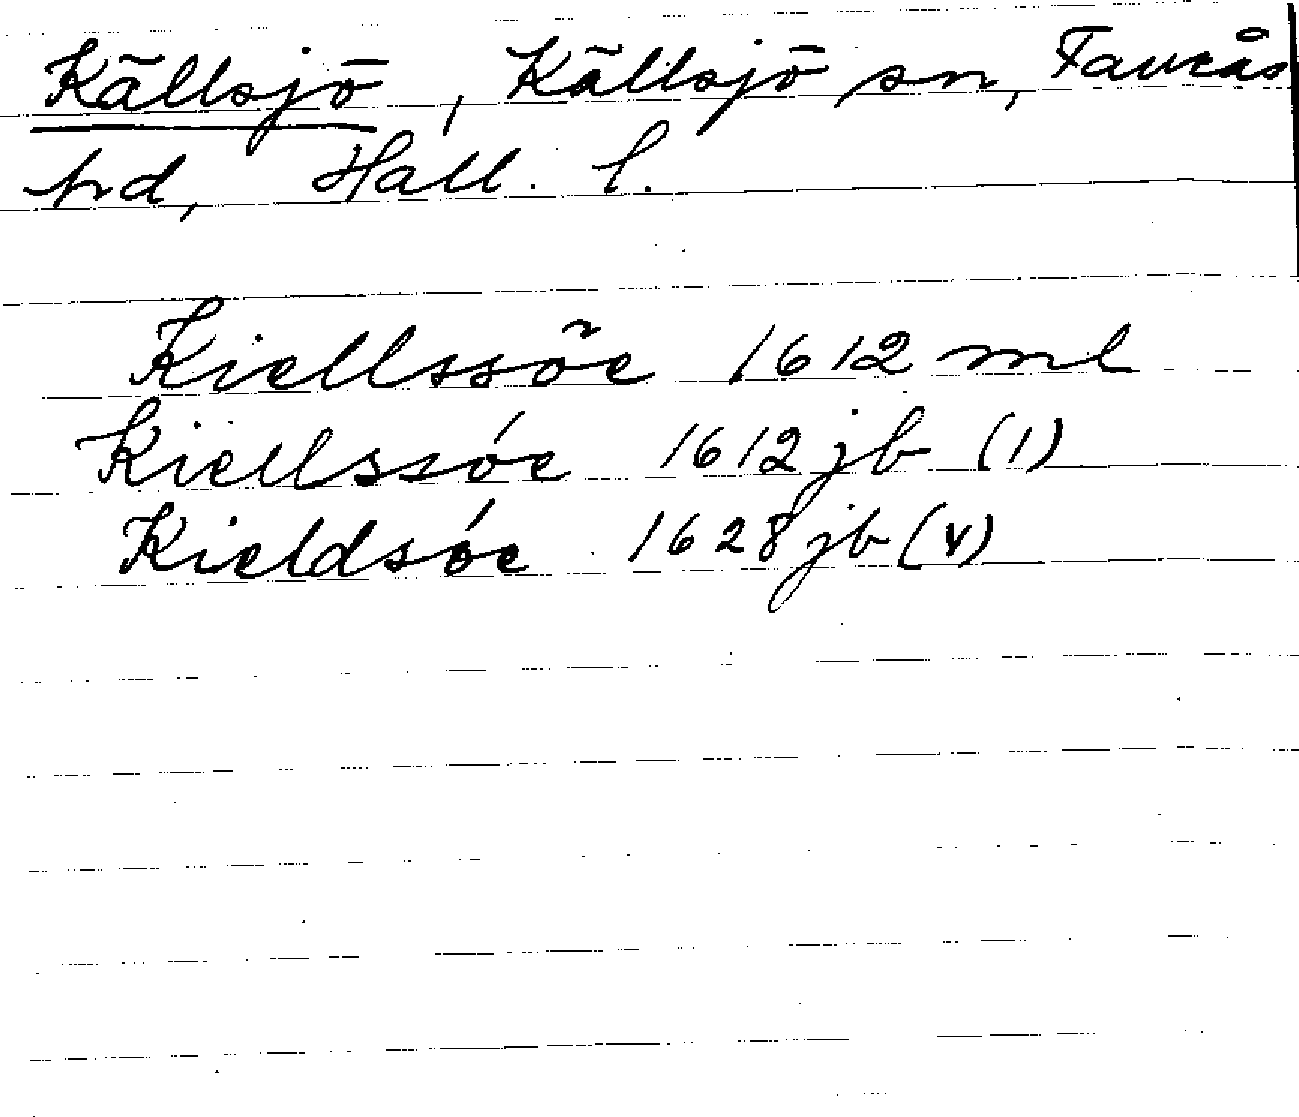 Källsjö, Källsjö sn, Faurås
hd, Hall. l.
Kiellssöe 1612 ml
Kiellssóe 1612 jb (1)
Kieldsóe 1628 jb (v)